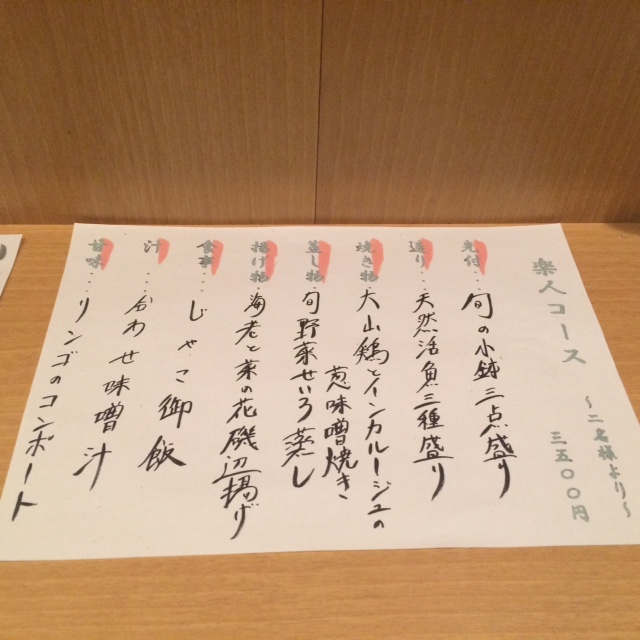 楽人コース
〜二名様より〜
三五〇〇円
先付…旬の小鉢三点盛り
造り…天然活魚三種盛り
焼き物…大山鶏とインカルージュの
葱味噌焼き
蒸し物…旬野菜せいろ蒸し
揚げ物…海老と菜の花磯辺揚げ
食事…じゃこ御飯
汁…合わせ味噌汁
甘味…リンゴのコンポート